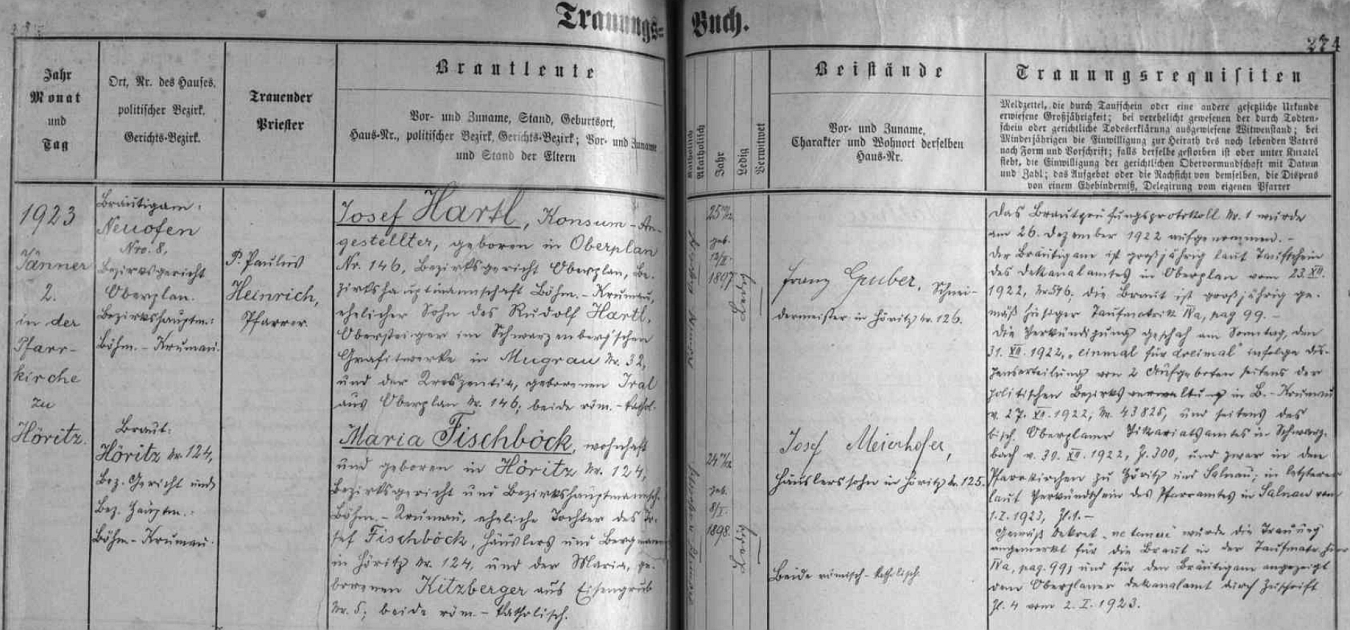 Trauungs-Buch.
274
Jahr
Monat
und
Tag
Ort, Nr. des Hauses,
politischer Bezirk.
Gerichts-Bezirk.
Trauender
Priester
Brautleute
Vor- und Zuname, Stand, Geburtsort,
Haus-Nr., politischer Bezirk, Gerichts-Bezirk; Vor- und Zuname
und Stand der Eltern
Katholisch
Akatholisch
Jahr
Ledig
Verwitwet
Beistände
Vor- und Zuname,
Charakter und Wohnort derselben
Haus-Nr.
Trauungsrequisiten
Meldzettel, die durch Taufschein oder eine andere gesetzliche Urkunde
erwiesene Großjährigkeit; bei verehelicht gewesenen der durch Todten-
schein oder gerichtliche Todeserklärung ausgewiesene Witwenstand; bei
Minderjährigen die Einwilligung zur Heirath des noch lebenden Vaters
nach Form und Vorschrift; falls derselbe gestorben ist oder unter Kuratel
steht, die Einwilligung der gerichtlichen Obervormundschaft mit Datum
und Zahl; das Aufgebot oder die Nachsicht von demselben, die Dispens
von einem Ehehinderniß, Delegirung vom eigenen Pfarrer
1923
Jänner
2.
in der
Pfarr-
kirche
zu
Höritz.
Bräutigam:
Neuofen
Nro. 8,
Bezirksgericht
Oberplan.
Bezirkshauptm.:
Böhm.-Krumau.
Braut:
Höritz Nr. 124,
Bez. Gericht und
Bez. Hauptm.:
Böhm.-Krumau.
P. Paulus
Heinrich,
Pfarrer.
Josef Hartl, Konsum-An-
gestellter, geboren in Oberplan
Nr. 146, Bezirksgericht Oberplan, Be-
zirkshauptmannschaft Böhm.-Krumau,
ehelicher Sohn des Rudolf Hartl,
Obersteiger im Schwarzenberg'schen
Grafitwerke in Mugrau Nr. 32,
und der Kreszentia, geborenen Tral
aus Oberplan Nr. 146; beide röm.-kathol.
Maria Fischböck, wohnhaft
und geboren in Höritz Nr. 124,
Bezirksgericht und Bezirkshauptmannsch.
Böhm.-Krumau, eheliche Tochter des Jo-
sef Fischböck, Häuslers und Bergmann
in Höritz Nr. 124, und der Maria, ge-
borenen Kitzberger aus Eisengrub
Nr. 5; beide röm.-katholisch.
geb.
1897
Ledig
geb.
8/I.
1898.
Ledig
Franz Gruber, Schnei-
dermeister in Höritz Nr. 126.
Josef Meierhofer,
Häuslerssohn in Höritz Nr. 125.
Beide römisch-katholisch
Das Brautprüfungsprotokoll Nr. 1 wurde
am 26. Dezember 1922 aufgenommen. -
Der Bräutigam ist großjährig laut Taufschein
des Dekanalamtes in Oberplan vom 23. XII.
1922, Die Braut ist großjährig ge-
mäß hiesiger Taufmatrik IVa, pag. 99. -
Die Verkündigung geschah am Sonntag, den
31. XII. 1922, "einmal für dreimal" infolge Dis-
penserteilung von 2 Aufgeboten seitens der
politischen Bezirksverwaltung in B.-Krumau
v. 27. XII. 1922, Nr. 43825, und seitens des
bisch. Oberplaner Vikariatsamtes in Schwarz-
bach v. 30. XII. 1922, Z. 300, und zwar in den
Pfarrkirchen zu Höritz und Salnau; in letzterer
laut Verkündschein des Pfarramtes in Salnau vom
1. I. 1923, Zl. 1. -
Gemäß Dekret "ne temere" wurde die Trauung
angemerkt für die Braut in der Taufmatrik hier
IVa, pag. 99, und für den Bräutigam angezeigt
dem Oberplaner Dekanalamt durch Zuschrift
Zl. 4 vom 2. I. 1923.